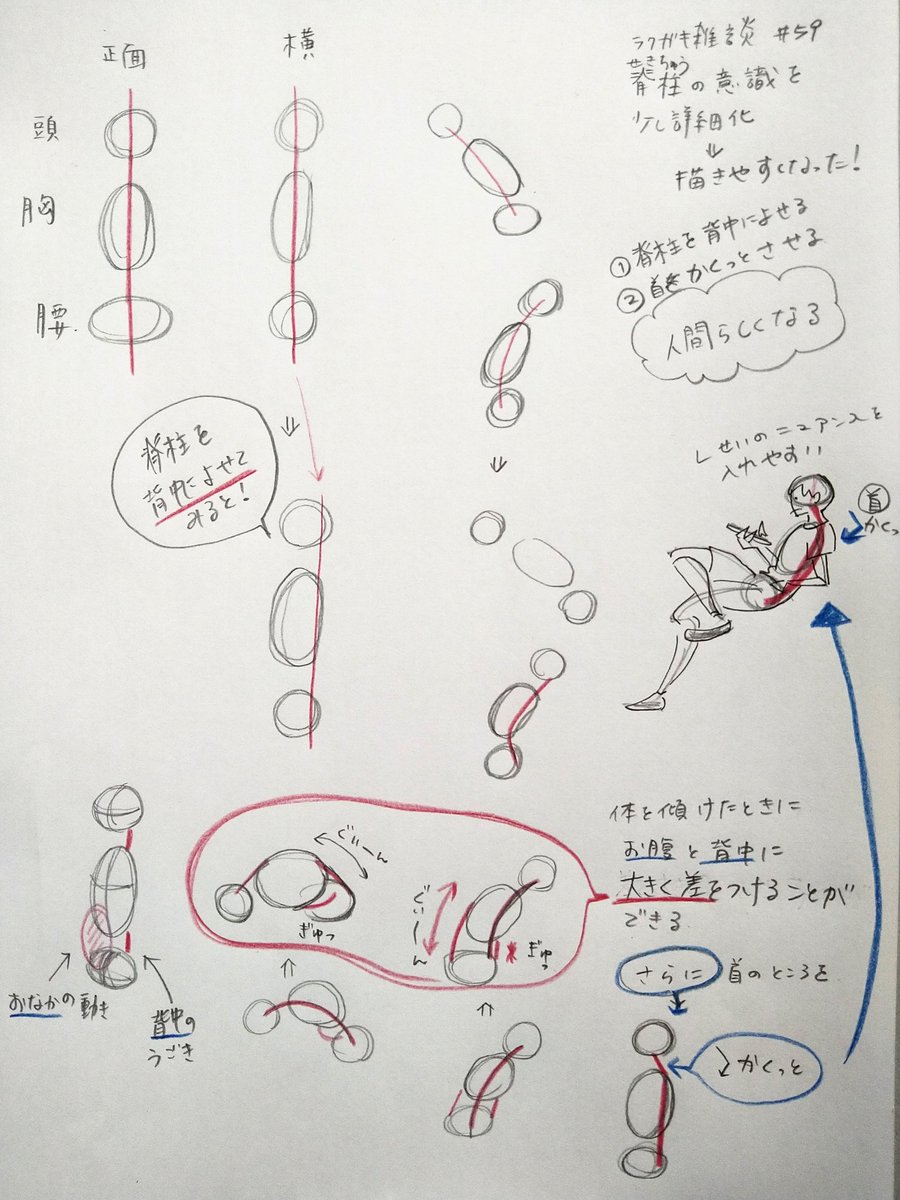 正面
横
頭
胸
腰
ラクガキ雑談 #59
せきちゅう
脊柱の意識を
少し詳細化
⇓
描きやすくなった!
①脊柱を背中によせる
②首をかくっとさせる
人間らしくなる
脊柱を
背中によせて
みると!
しせいのニュアンスを
入れやすい
首
かくっ
体を傾けたときに
お腹と背中に
大きく差をつけることが
できる
ぐぃーん
ぎゅっ
ぐぃーん
ぎゅっ
おなかの動き
背中の
うごき
さらに 首のところを
かくっと